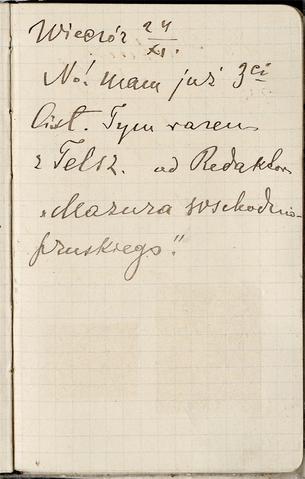 Wieczór 24/XI.
No! mam już 3ci
list. Tym razem
z Telsz. od Redaktora
"Mazura wschodnio-
pruskiego."